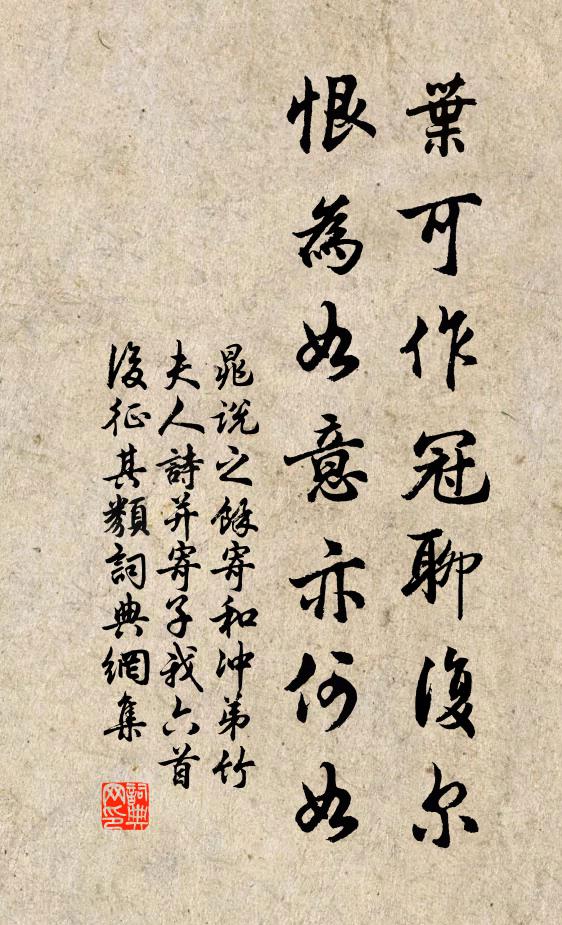 葉可作冠聊復尔
恨為如意亦何如
晁說之餘寄和冲弟竹
夫人詩并寄子我六首
復征其類詞典網集
詞典網印